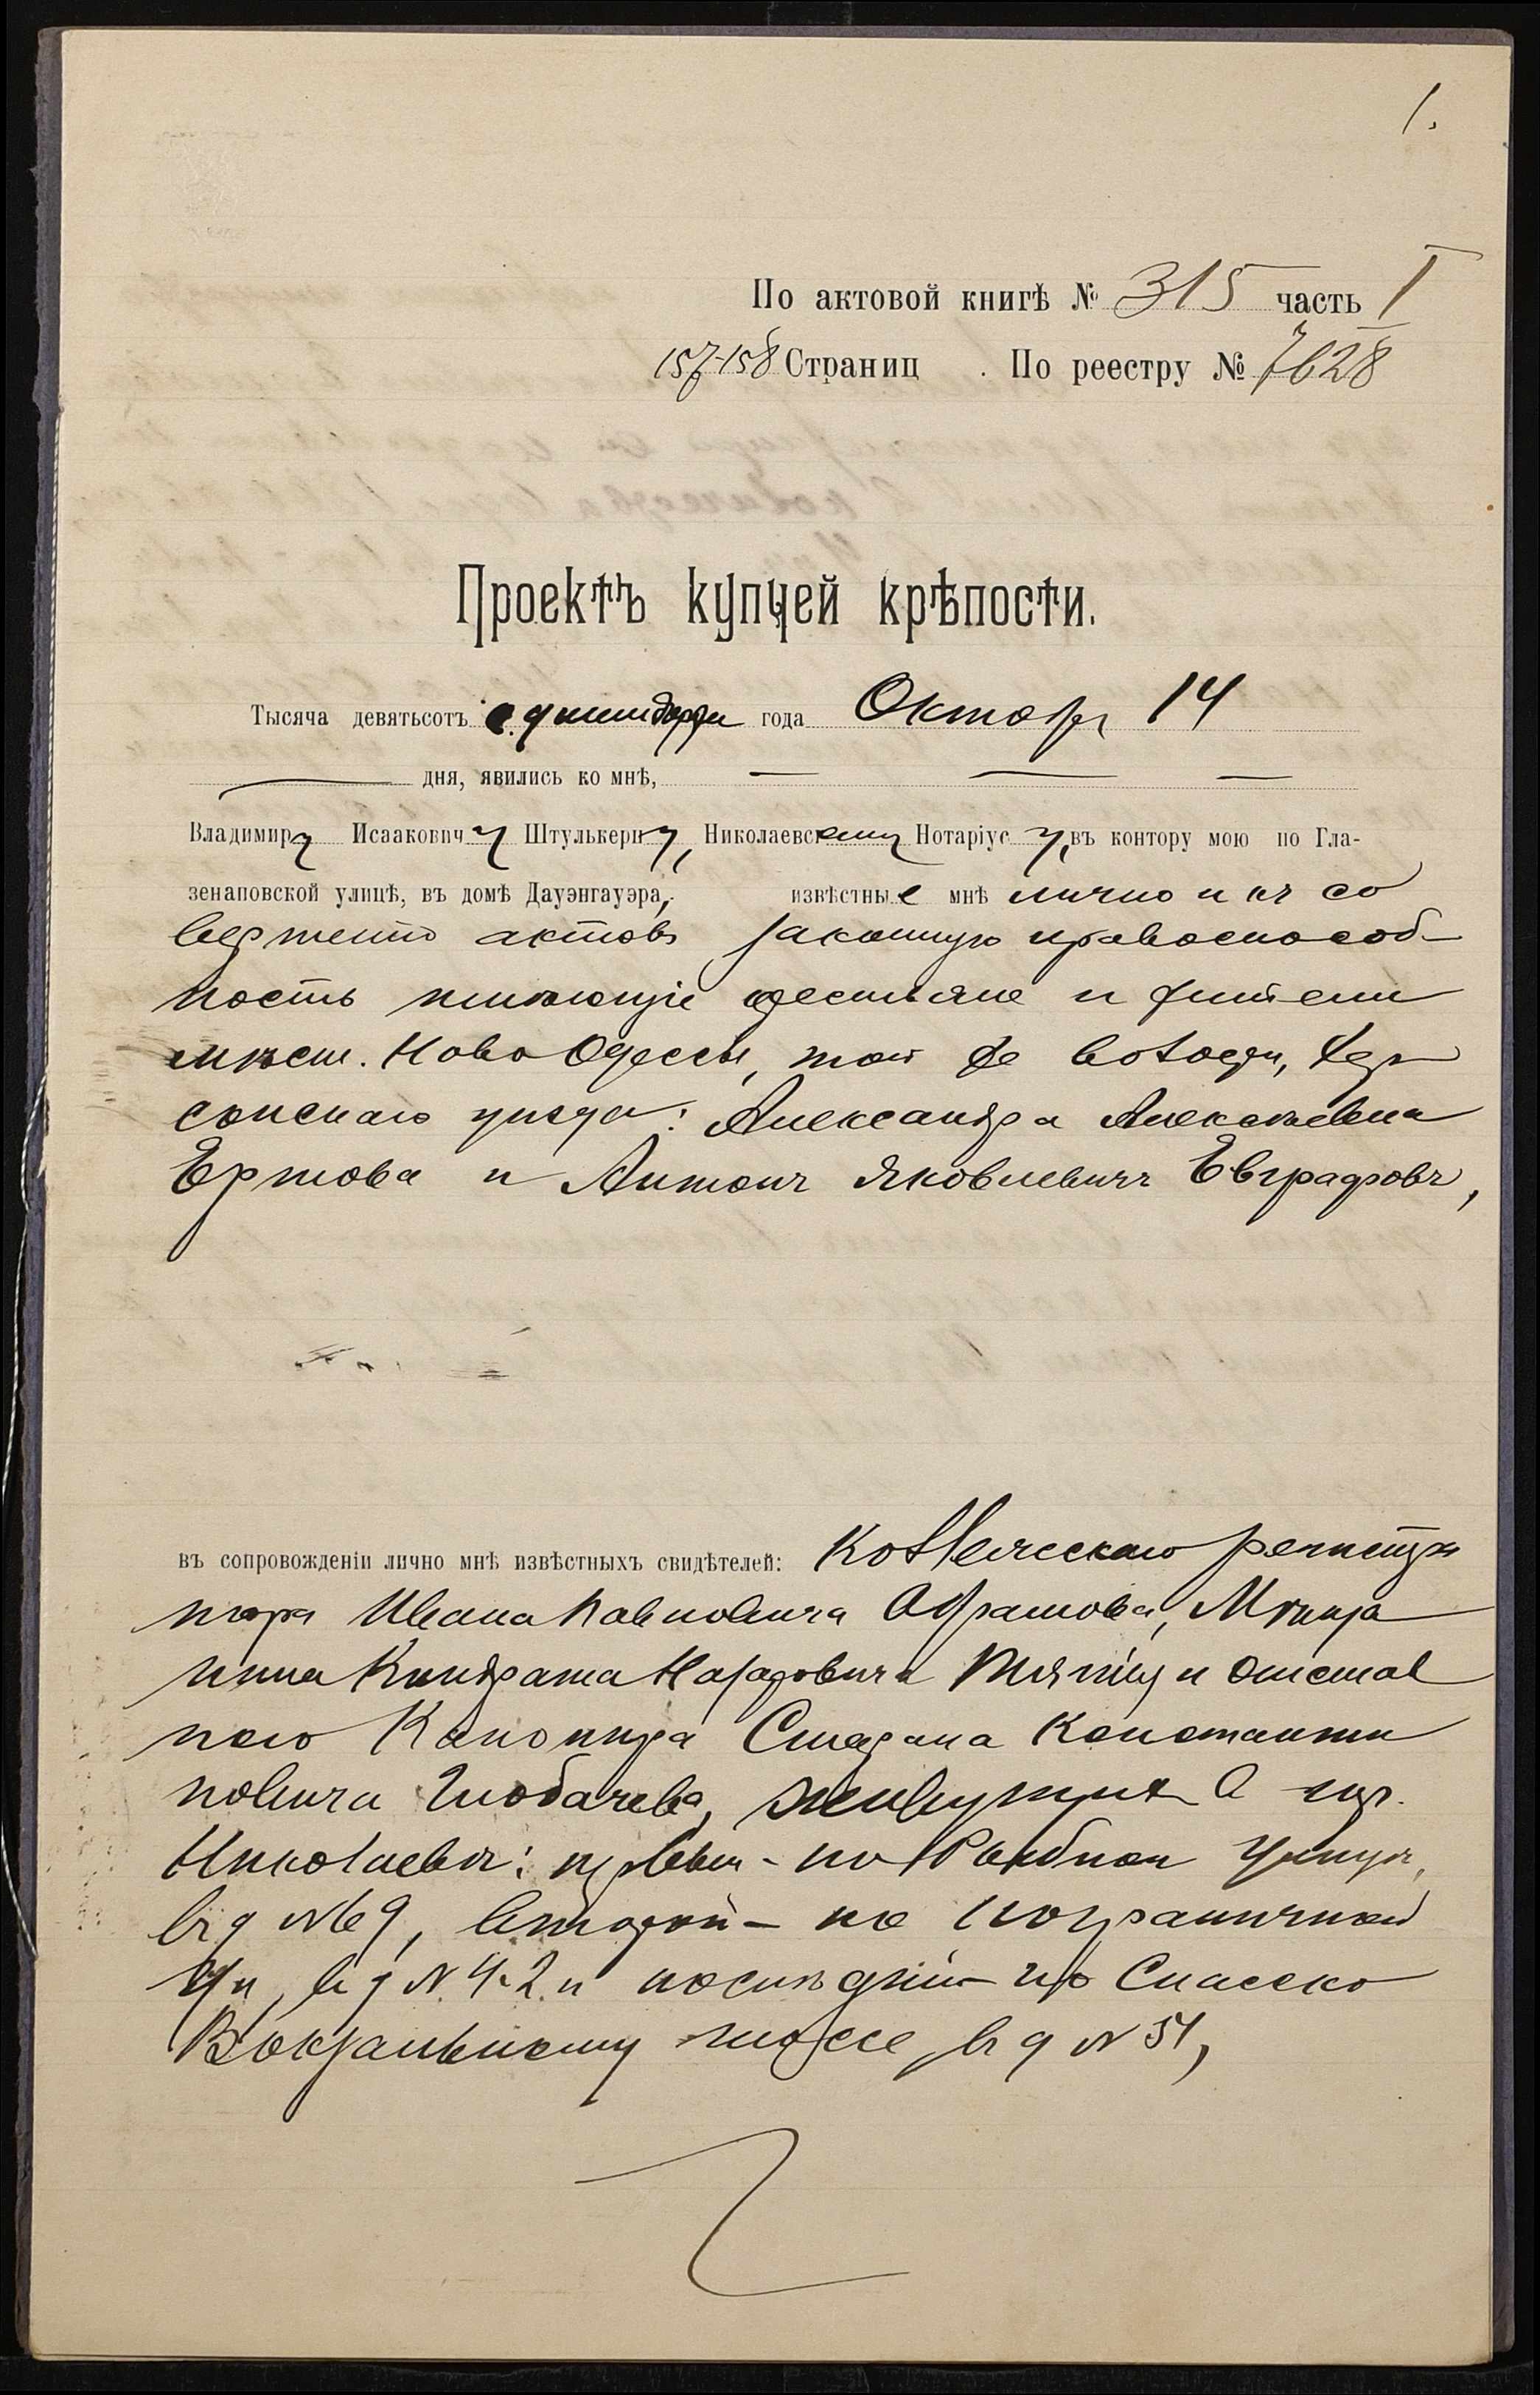 1.
По актовой книгѣ № 315 часть I
157-158 Страниц . По реестру № 7628
Проектъ купчей крѣпости.
Тысяча девятьсотъ года Октября 14
дня, явились ко мнѣ,
Владимиру Исааковичу Штулькерну, Николаевскому Нотаріусу, въ контору мою по Гла-
зенаповской улицѣ, въ домѣ Дауэнгауэра, извѣстные мнѣ лично и къ со
вершенію актовъ законную правоспособ-
ность имѣющіе крестьяне и жители
мѣст. Ново Одессы, той же волости, Хер
сонскаго уѣзда: Александра Алексѣевна
и Антонъ Яковлевичъ Евграфовъ,
въ сопровожденіи лично мнѣ извѣстныхъ свидѣтелей: Коллежскаго регистра
тора Ивана Павловича Абрамова, Мѣща
нина Кондрата Назаровича и отстав
ного Канонира Степана Константи
новича живущихъ в гор.
Николаевѣ: первый - по Рыбной улицѣ,
въ д №69, второй - по Пограничной
ул, въ д № 42 и послѣдній - по Спасско
Вокзальному шоссе, въ д № 51,